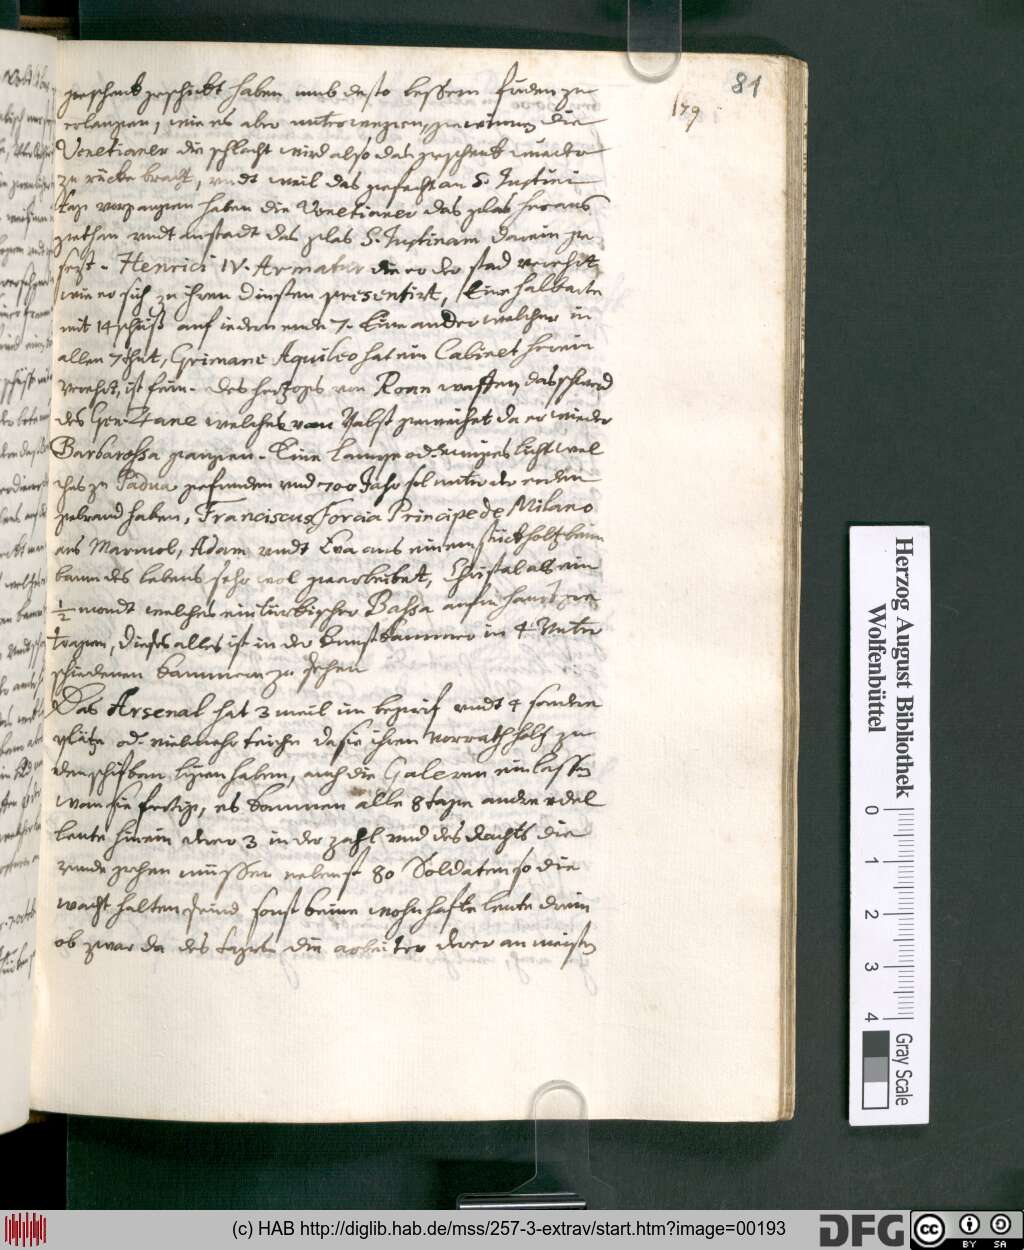 81
179
geschenk geschikt haben umb desto bessern frieden zu
erlangen, wie es aber unterwegen, gewinnen die
Venetianer die schlacht wird also das geschenk wieder
zu rücke bracht, undt weil das gefecht an S. Justini
tag vorgangen haben die Venetianer das glas heraus
gethan undt anstadt das glas S. Justinam darein ge
sezt. Henrici IV. Armatur die er der stad verehrt
wie er sich zu ihren diensten presentirt, Eine halbarte
mit 14 schuß auf iedem ende 7. Eine ander welcher in
allen 7 thut, Grimane Aquileo hat ein Cabinet herein
verehrt, ist fein. des herzogs von Roan waffen, das schwerd
des Gen. Zane welches vom Pabst geweihet da er wieder
Barbarossa gangen. Eine lampe od. ewiges licht wel
ches zu Padua gefunden und 700 Jahr sol unter der erden
gebrand haben, Franciscus Sforcia Principe de Milano
aus Marmol, Adam undt Eva aus einem stück holtz beim
baum des lebens sehr wol gearbeitet, Christal als ein
1/2 mondt welches ein türkischer Bassa auf'm haupt ge
tragen, dieses alles ist in der kunstkammer in 4 unter
schiedenen kammern zu sehen
Das Arsenal hat 3 meil im begrif undt 4 sondere
plätze od. vielmehr teiche da sie ihren vorrath holz zu
den schifbau ligen haben, auch die Galeren einlassen
wan sie fertig, es kommen alle 8 tage andre edel
leute hinein derer 3 in der zahl und des Nachts die
runde gehen müssen nebenst 80 Soldaten so die
wacht halten seind sonst keine wohnhafte leute drein
ob zwar da des tages die arbeiter derer an meisten
Herzog August Bibliothek
Wolfenbüttel
0 1 2 3 4
Gray Scale
(c) HAB http://diglib.hab.de/mss/257-3-extrav/start.htm?image=00193
DFG
CC BY SA